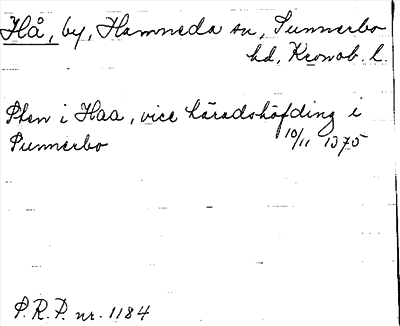 Hå, by, Hamneda sn, Sunnerbo
hd, Kronob. l.
Sten i Haa, vice häradshöfding i
Sunnerbo 10/11 1375
P.R.P. nr. 1184